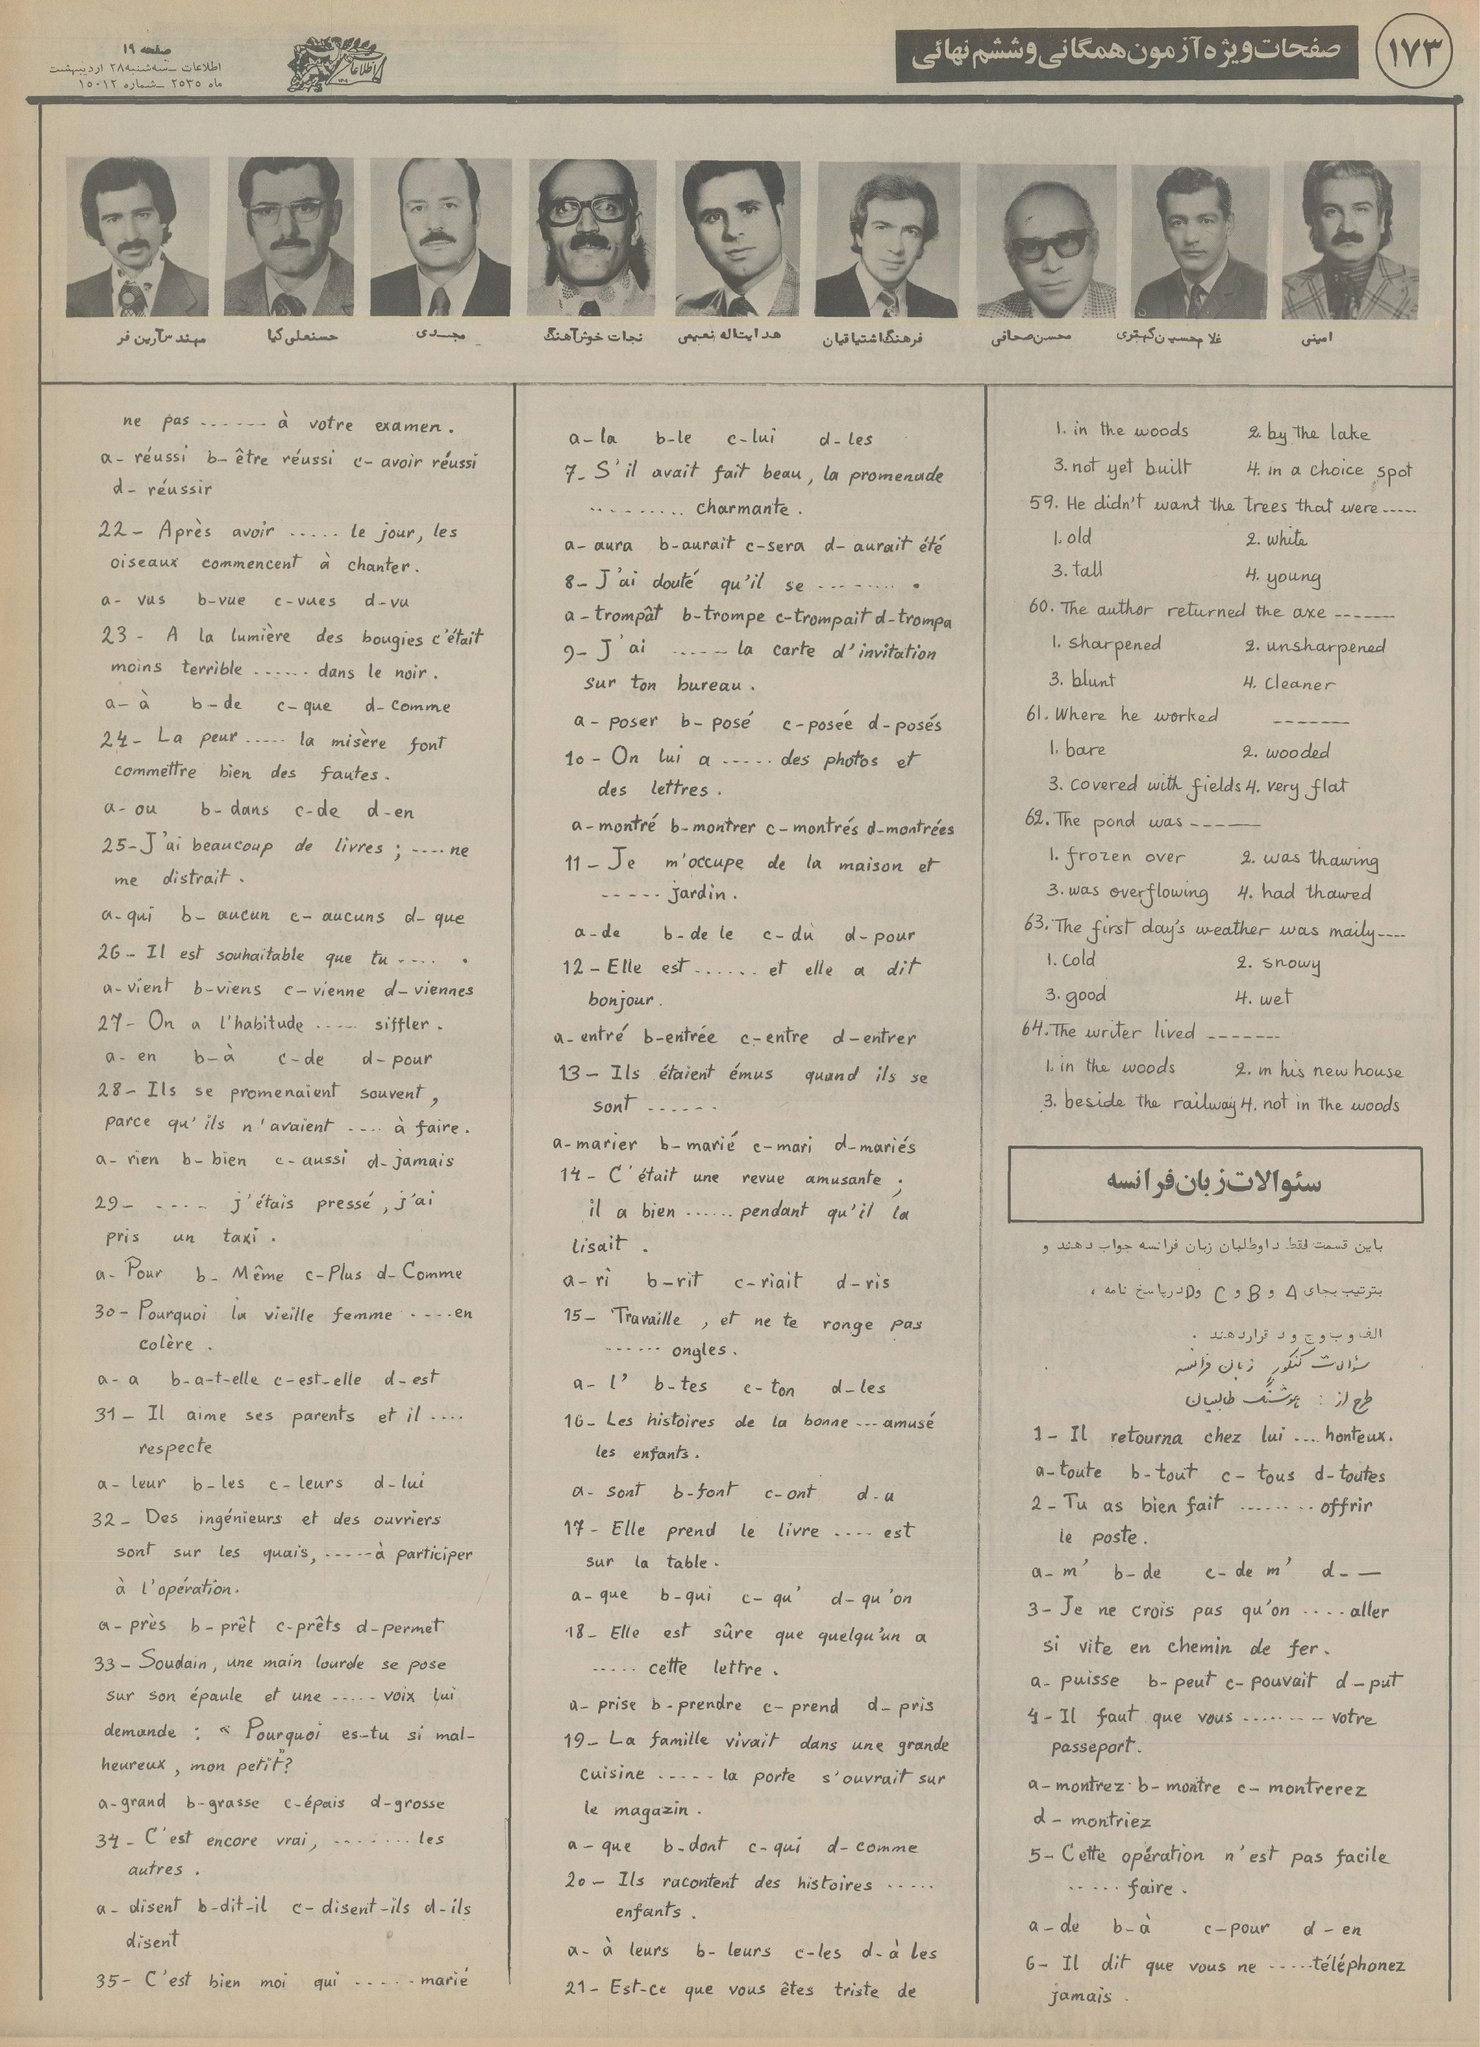 ۱۷۳
صفحات ویژه آزمون همگانی و ششم نهائی
صفحه ۱۹
اطلاعات ـ سه‌شنبه ۲۸ اردیبهشت
ماه ۲۵۳۵ ـ شماره ۱۵۰۱۲
اطلاعات
امینی
غلامحسین کهتری
محسن صحافی
فرهنگ اشتیاقیان
هدایت‌اله نعیمی
نجات خوش‌آهنگ
مجدی
حسنعلی کیا
مهندس آرین فر
1. in the woods 2. by the lake
3. not yet built 4. in a choice spot
59. He didn't want the trees that were -----
1. old 2. white
3. tall 4. young
60. The author returned the axe ------
1. sharpened 2. unsharpened
3. blunt 4. cleaner
61. Where he worked -------
1. bare 2. wooded
3. covered with fields 4. very flat
62. The pond was ------
1. frozen over 2. was thawing
3. was overflowing 4. had thawed
63. The first day's weather was maily ----
1. cold 2. snowy
3. good 4. wet
64. The writer lived -------
1. in the woods 2. in his new house
3. beside the railway 4. not in the woods
سئوالات زبان فرانسه
باین قسمت فقط داوطلبان زبان فرانسه جواب دهند و
بترتیب بجای A و B و C و D در پاسخ نامه ،
الف و ب و ج و د قرار دهند .
سؤالات کنکور زبان فرانسه
طرح از : هوشنگ طالبیان
1- Il retourna chez lui .... honteux.
a- toute b- tout c- tous d- toutes
2- Tu as bien fait ........ offrir
le poste.
a- m' b- de c- de m' d- —
3- Je ne crois pas qu'on .... aller
si vite en chemin de fer.
a- puisse b- peut c- pouvait d- put
4- Il faut que vous -------- votre
passeport.
a- montrez b- montre c- montrerez
d- montriez
5- Cette opération n'est pas facile
...... faire.
a- de b- à c- pour d- en
6- Il dit que vous ne ..... téléphonez
jamais.
a- la b- le c- lui d- les
7- S'il avait fait beau, la promenade
......... charmante.
a- aura b- aurait c- sera d- aurait été
8- J'ai douté qu'il se -------- .
a- trompât b- trompe c- trompait d- trompa
9- J'ai ------ la carte d'invitation
sur ton bureau.
a- poser b- posé c- posée d- posés
10- On lui a ..... des photos et
des lettres.
a- montré b- montrer c- montrés d- montrées
11- Je m'occupe de la maison et
----- jardin.
a- de b- de le c- du d- pour
12- Elle est ...... et elle a dit
bonjour.
a- entré b- entrée c- entre d- entrer
13- Ils étaient émus quand ils se
sont ------
a- marier b- marié c- mari d- mariés
14- C'était une revue amusante ;
il a bien ...... pendant qu'il la
lisait .
a- ri b- rit c- riait d- ris
15- Travaille, et ne te ronge pas
...... ongles.
a- l' b- tes c- ton d- les
16- Les histoires de la bonne --- amusé
les enfants.
a- sont b- font c- ont d- a
17- Elle prend le livre .... est
sur la table.
a- que b- qui c- qu' d- qu'on
18- Elle est sûre que quelqu'un a
..... cette lettre.
a- prise b- prendre c- prend d- pris
19- La famille vivait dans une grande
cuisine ..... la porte s'ouvrait sur
le magazin.
a- que b- dont c- qui d- comme
20- Ils racontent des histoires .....
enfants.
a- à leurs b- leurs c- les d- à les
21- Est-ce que vous êtes triste de
ne pas ------ à votre examen.
a- réussi b- être réussi c- avoir réussi
d- réussir
22- Après avoir ..... le jour, les
oiseaux commencent à chanter.
a- vus b- vue c- vues d- vu
23- A la lumière des bougies c'était
moins terrible ...... dans le noir.
a- à b- de c- que d- comme
24- La peur ..... la misère font
commettre bien des fautes.
a- ou b- dans c- de d- en
25- J'ai beaucoup de livres ; ---- ne
me distrait.
a- qui b- aucun c- aucuns d- que
26- Il est souhaitable que tu ---- .
a- vient b- viens c- vienne d- viennes
27- On a l'habitude ----- siffler.
a- en b- à c- de d- pour
28- Ils se promenaient souvent,
parce qu'ils n'avaient .... à faire.
a- rien b- bien c- aussi d- jamais
29- ---- j'étais pressé, j'ai
pris un taxi.
a- Pour b- Même c- Plus d- Comme
30- Pourquoi la vieille femme ---- en
colère.
a- a b- a-t-elle c- est-elle d- est
31- Il aime ses parents et il ....
respecte
a- leur b- les c- leurs d- lui
32- Des ingénieurs et des ouvriers
sont sur les quais, ----- à participer
à l'opération.
a- près b- prêt c- prêts d- permet
33- Soudain, une main lourde se pose
sur son épaule et une ----- voix lui
demande : "Pourquoi es-tu si mal-
heureux, mon petit"?
a- grand b- grasse c- épais d- grosse
34- C'est encore vrai, ........ les
autres.
a- disent b- dit-il c- disent-ils d- ils
disent
35- C'est bien moi qui ----- marié